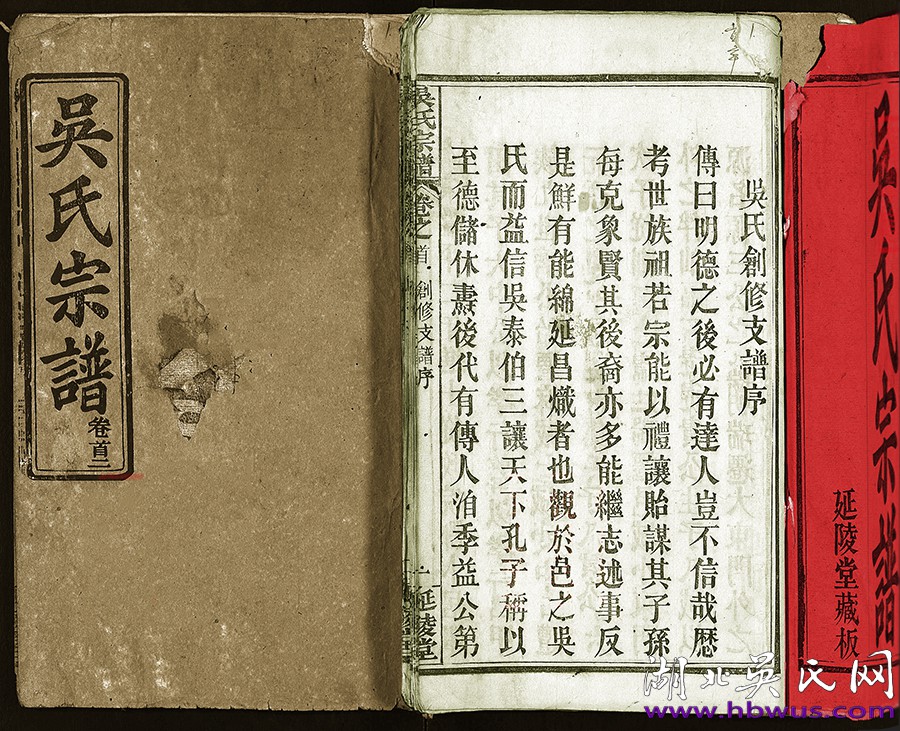 吳氏宗譜
卷首二
吳氏創修支譜序
傳曰明德之後必有達人豈不信哉歷
考世族祖若宗能以禮讓貽謀其子孫
每克象賢其後裔亦多能繼志述事反
是鮮有能綿延昌熾者也觀於邑之吳
氏而益信吳泰伯三讓天下孔子稱以
至德儲休燾後代有傳人洎季益公第
吳氏宗譜 卷之首 創修支譜序 一 延陵堂
吳氏宗譜
延陵堂藏板
湖北吳氏网
www.hbwus.com